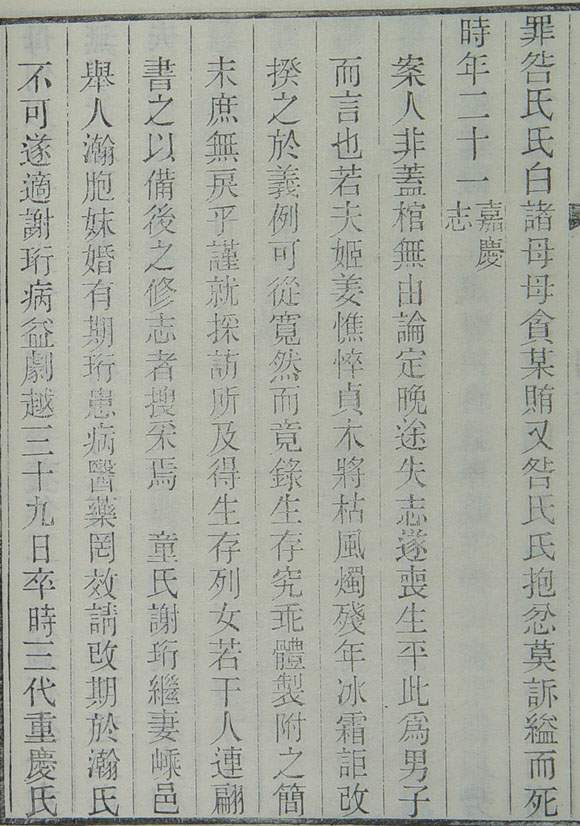 罪咎氏氏白諸母母貪某賄又咎氏氏抱忿莫訴縊而死
時年二十一嘉慶志
案人非蓋棺無由論定晚途失志遂喪生平此為男子
而言也若夫姬姜憔悴貞木將枯風燭殘年冰霜詎改
揆之於義例可從寬然而竟錄生存究乖體製附之簡
末庶無戾乎謹就採訪所及得生存列女若干人連翩
書之以備後之修志者搜采焉　童氏謝珩繼妻嵊邑
舉人瀚胞妹婚有期珩患病醫藥罔效請改期於瀚氏
不可遂適謝珩病益劇越三十九日卒時三代重慶氏